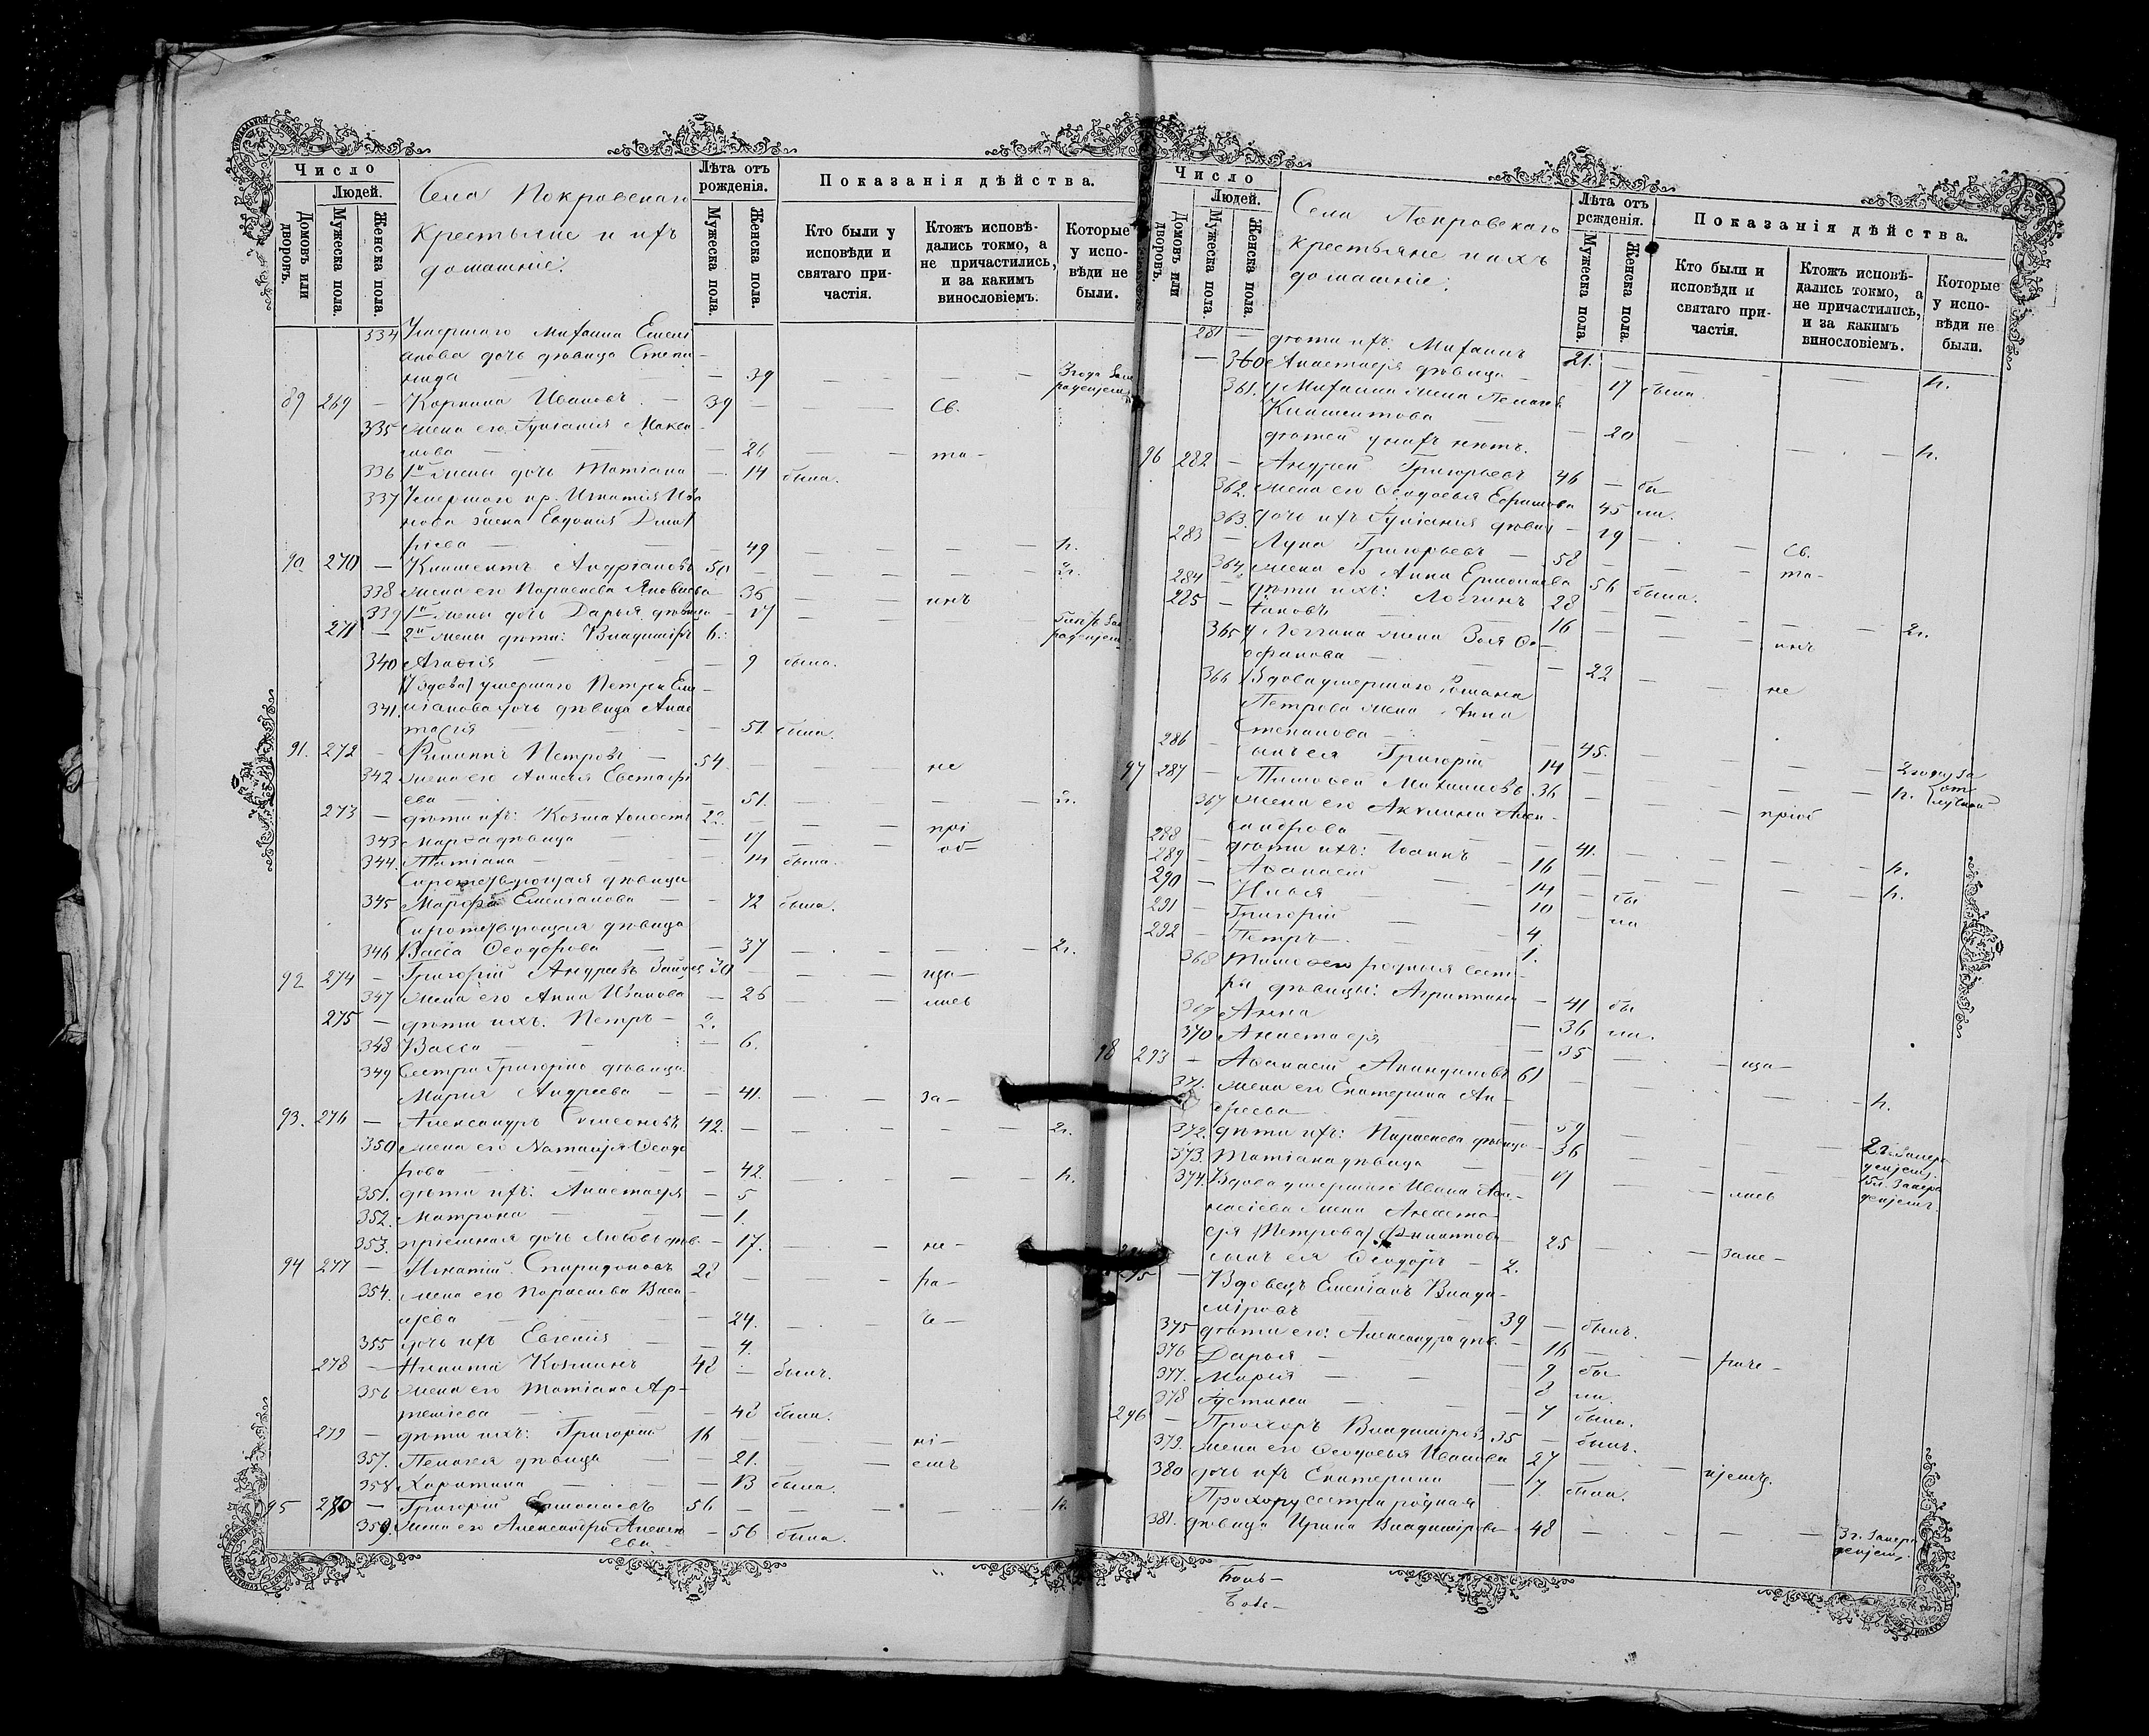 Число
Людей.
Домовъ или дворовъ.
Мужеска пола.
Женска пола.
Села Покровскаго
крестьяне и ихъ
домашніе:
Лѣта отъ
рожденія.
Мужеска пола.
Женска пола.
Показанія дѣйства.
Кто были у
исповѣди и
святаго при-
частія.
Ктожъ исповѣ-
дались токмо, а
не причастились,
и за какимъ
винословіемъ.
Которые
у испо-
вѣди не
были.
334 Умершаго Михаила Емелі
анова дочь дѣвица Степа-
нида — 39
89 269 — Корнила Ивановъ — 39 — — — Св.
335 жена его Гулианія Макси-
мова — 26 — — та-
336 1й жены дочь Татіана — 14 была.
337 Умершаго кр. Игнатія Ива
нова жена Евдокія Дмит
ріева — 49 — — — н.
90. 270 — Климентъ Андріановъ 50 — — — — 2г.
338 жена его Параскева Яковлева — 36 — — инъ
339 1й жены дочь Дарья дѣвица — 17
271 — 2й жены дѣти: Владиміръ 6.
340 Агафія — 9 была.
Вдова умершаго Петра Еме-
341. ліанова дочь дѣвица Анас
тасія — 51. была.
91. 272 — Филиппъ Петровъ — 54 — — — не
342 жена его Анисія Евстафі
ева — 51. — — — 2г.
273 — дѣти ихъ: Козма холостъ 22. — — — прі
343 Марѳа дѣвица — 17 — — об
344. Татіана — 14 была.
Сиротствующая дѣвица
345 Марѳа Емеліанова — — 42 была.
Сиротствующая дѣвица
346 Васса Ѳеодорова — — 37 — — — 2г.
92 274 — Григорій Андреевъ 30 — — — ща-
347 жена его Анна Иванова — 26 — — лись
275 — дѣти ихъ: Петръ — 2.
348 Васса — — 6.
349 Сестра Григорію дѣвица
Марія Андреева — — 41. — — за-
93. 276 — Александръ Симеоновъ 42. — — — — 2г.
350 жена его Наталія Ѳеодо
рова — 42. — — — н.
351. дѣти ихъ: Анастасія — 5
352. Матрона — — 1.
353. пріемная дочь Любовь дѣв. — 17. — — не-
94 277 — Игнатій Спиридоновъ 28 — — — ра-
354. жена его Параскева Васи-
лјева — 24. — —
355 дочь ихъ Евгенія — 4.
278 — Никита Козминъ 48 — былъ.
356 жена его Татіана Ар-
теміева — 48 была.
279 — дѣти ихъ: Григорій 16 — — — ні-
357. Пелагія дѣвица — — 21. — — емъ
358 Харитина — — 13 была.
95 280 — Григорій Ермолаевъ 56 — — — — н.
359. жена его Александра Алексѣ
ева — 56 была.
Число
Людей.
Домовъ или дворовъ.
Мужеска пола.
Женска пола.
Села Покровскаго
крестьяне и ихъ
домашніе:
Лѣта отъ
рожденія.
Мужеска пола.
Женска пола.
Показанія дѣйства.
Кто были и
исповѣди и
святаго при-
частія.
Ктожъ исповѣ-
дались токмо, а
не причастились,
и за каким
винословіемъ.
Которые
у испо-
вѣди не
были.
281 — дѣти ихъ: Михаилъ 21. — — — н.
— 360 Анастасія дѣвица — 17 была.
361. у Михаила жена Пелагія
Климентова — 20 — — — н.
дѣтей у нихъ нѣтъ.
96 282 — Андрей Григорьевъ 46 — бы
362. жена его Ѳеодосья Ефимова 45 ли.
363. дочь ихъ Гулианія дѣвица — 19 — — Св.
283 — Лука Григорьевъ — 58 — — — та-
364. жена его Анна Ермолаева 56 была.
284 — дѣти ихъ: Логгинъ 28 — — — — 2г.
285 — Іаковъ — 16 — — — инъ
365 у Логгина жена Зоя Ѳе-
офанова — 22 — — не
366 Вдова умершаго Романа
Петрова жена Анна
Степанова — 45.
286 — сынъ ея Григорій 14
97 287 — Тимоѳей Михаиловъ 36 — — — н.
367 жена его Акилина Алек-
сандрова — 41. — — пріоб
288 — дѣти ихъ: Іоаннъ — 16 — — — н.
289 — Аѳанасій — 14 — — — н.
290 — Илья — 10 — бы
291 — Григорій — 4 — ли
292 — Петръ — 1.
368 Тимоѳею родныя сест-
ры дѣвицы: Агриппина — 41 бы
369 Анна — 36 ли.
370 Анастасія — 35 — — ща-
98 293 — Аѳанасій 61 — — — н.
371. жена его Екатерина Ан-
дреева — 59
372. дѣти ихъ: Параскева дѣвица — 36
373. Татіана дѣвица — 17 — — лись
374. Вдова умершаго Ивана Аѳа-
насіева жена Анаста-
сія Петрова — 25 — — запе-
294 сынъ ея Ѳеодоръ — 2.
295 — Вдовецъ Емеліанъ Влади-
міровъ — 39 — былъ.
375 дѣти его: Александра дѣв. — 16 — — раче-
376 Дарья — 9 бы
377. Марія — — 8 ли.
378 Іустина — 4 была.
296 — Прохоръ Владиміровъ 35 — былъ.
379. жена его Ѳеодосья Иванова 27 — — ијемъ.
380 дочь ихъ Екатерина — 7. была.
Прохору сестра родная
381. дѣвица Ирина Владимірова — 48 — — —